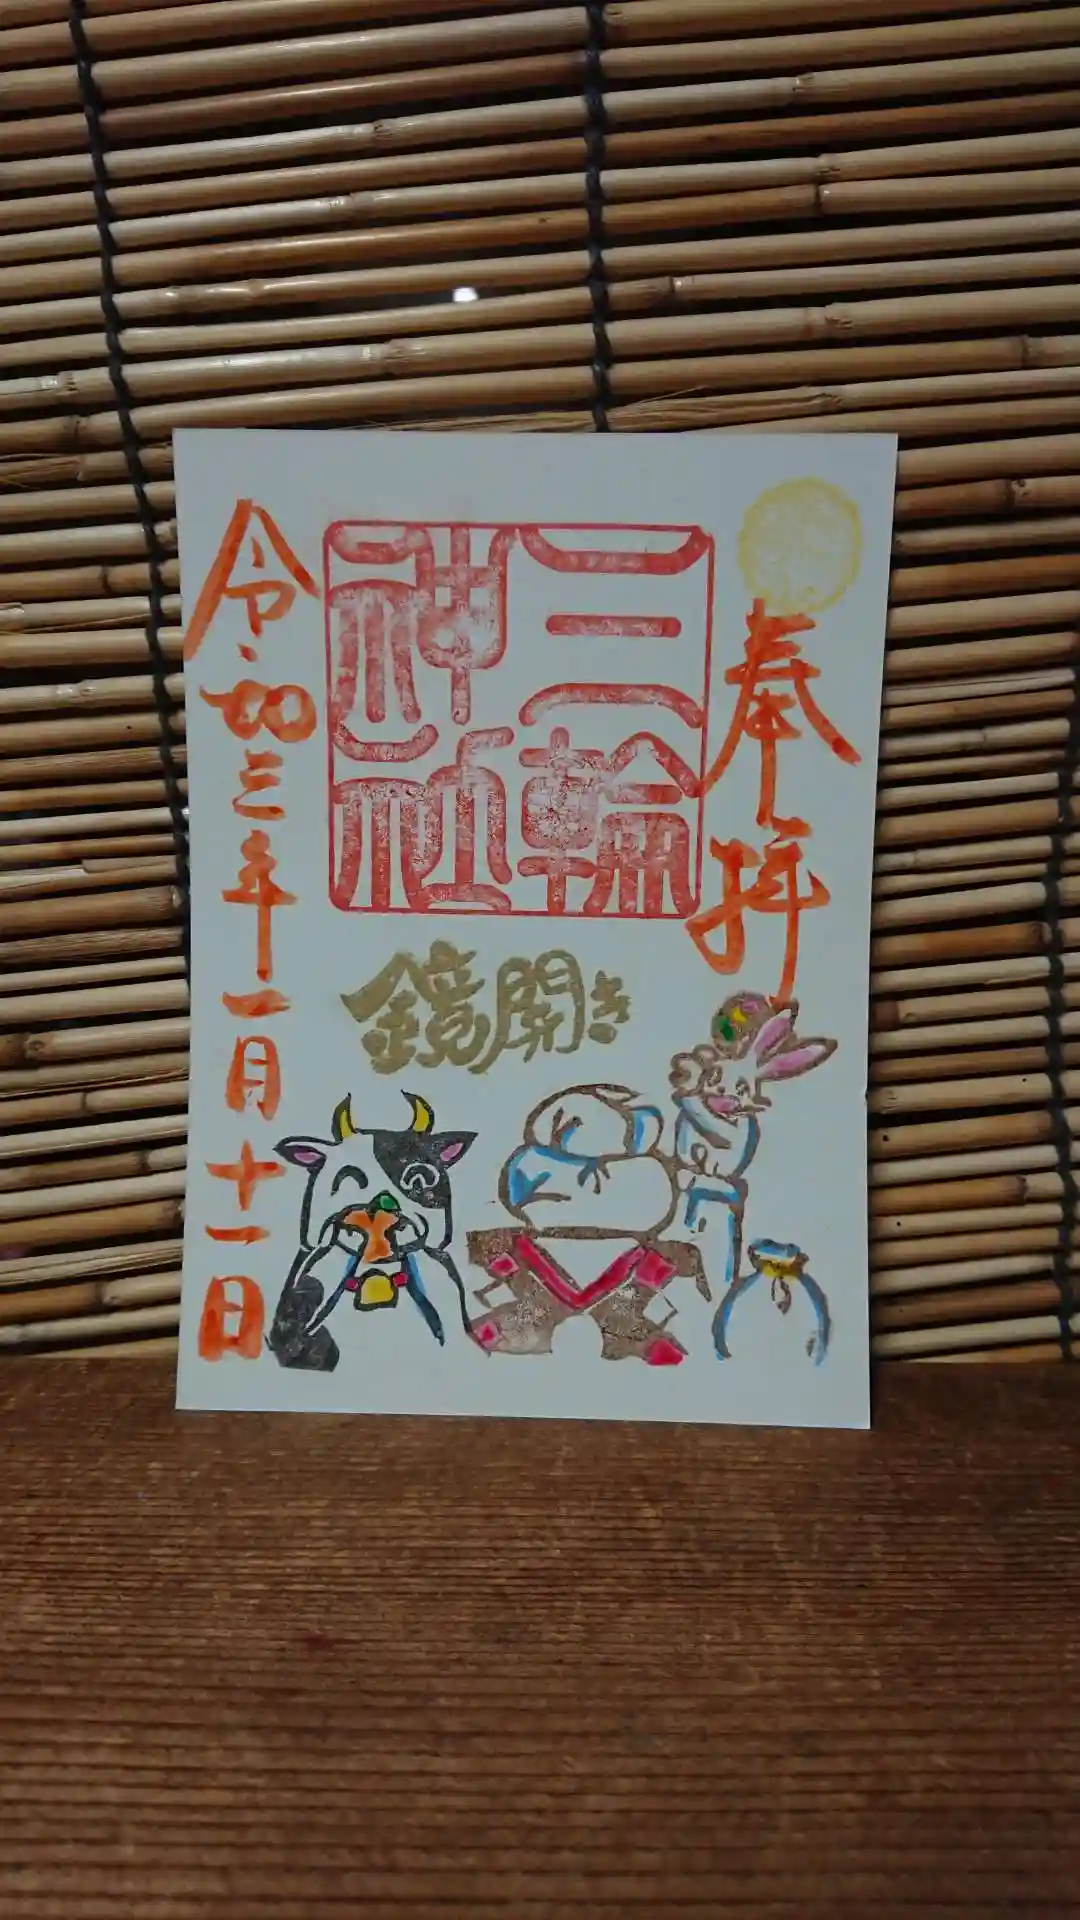 奉拝
三輪
神社
鏡開き
令和三年一月十一日